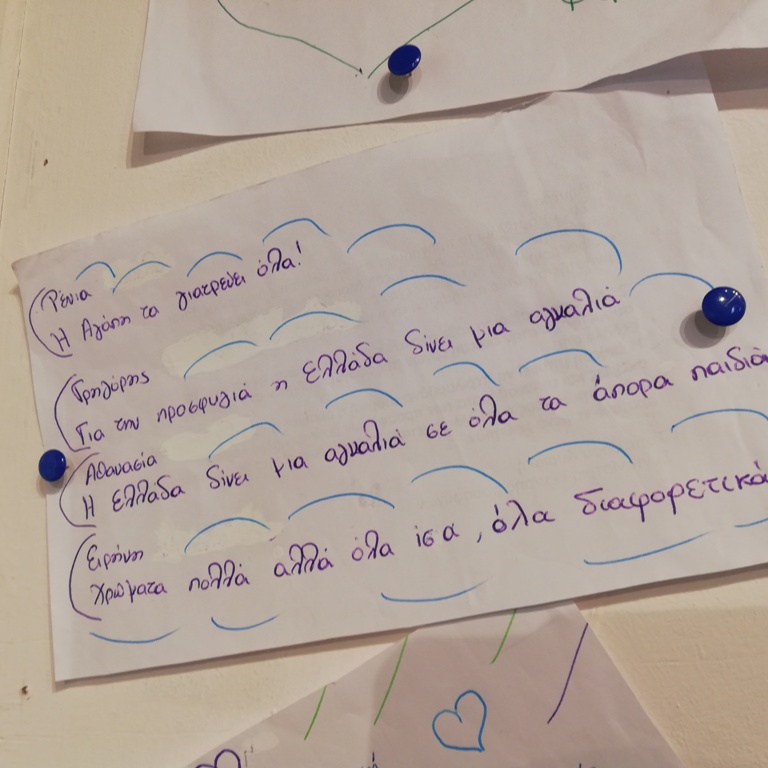 Ρένια
Η Αγάπη τα γιατρεύει όλα!
Γρηγόρης
Για την προσφυγιά η Ελλάδα δίνει μια αγκαλιά
Αθανασία
Η Ελλάδα δίνει μια αγκαλιά σε όλα τα άπορα παιδιά
Ειρήνη
Χρώματα πολλά αλλά όλα ίσα, όλα διαφορετικά